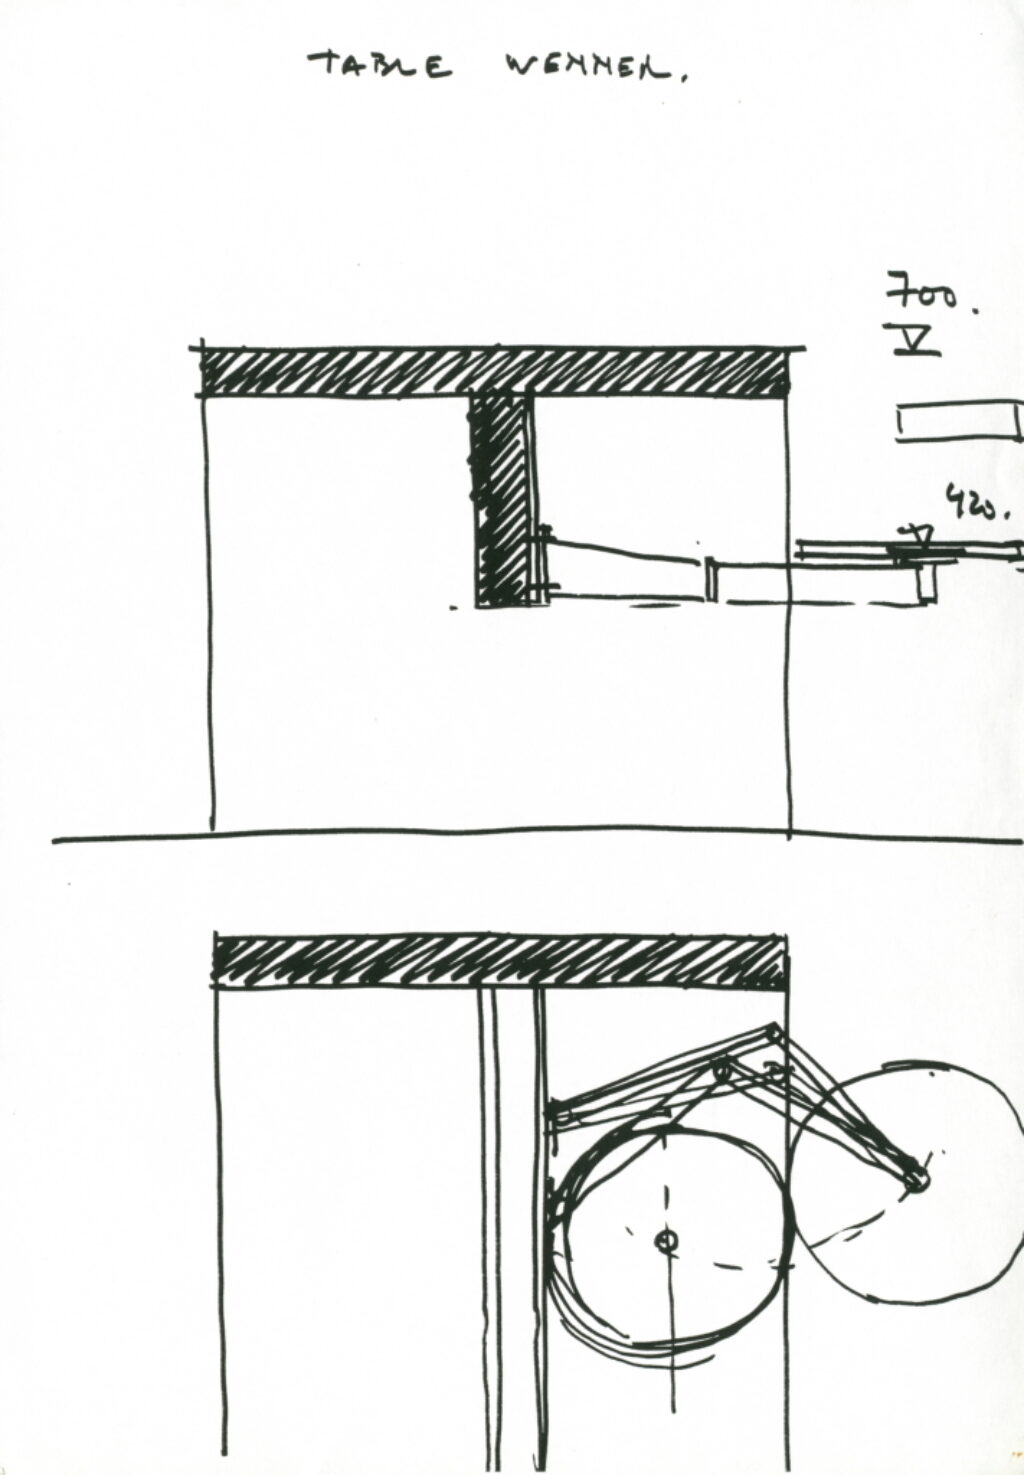 TABLE WENNEN.
700.
420.